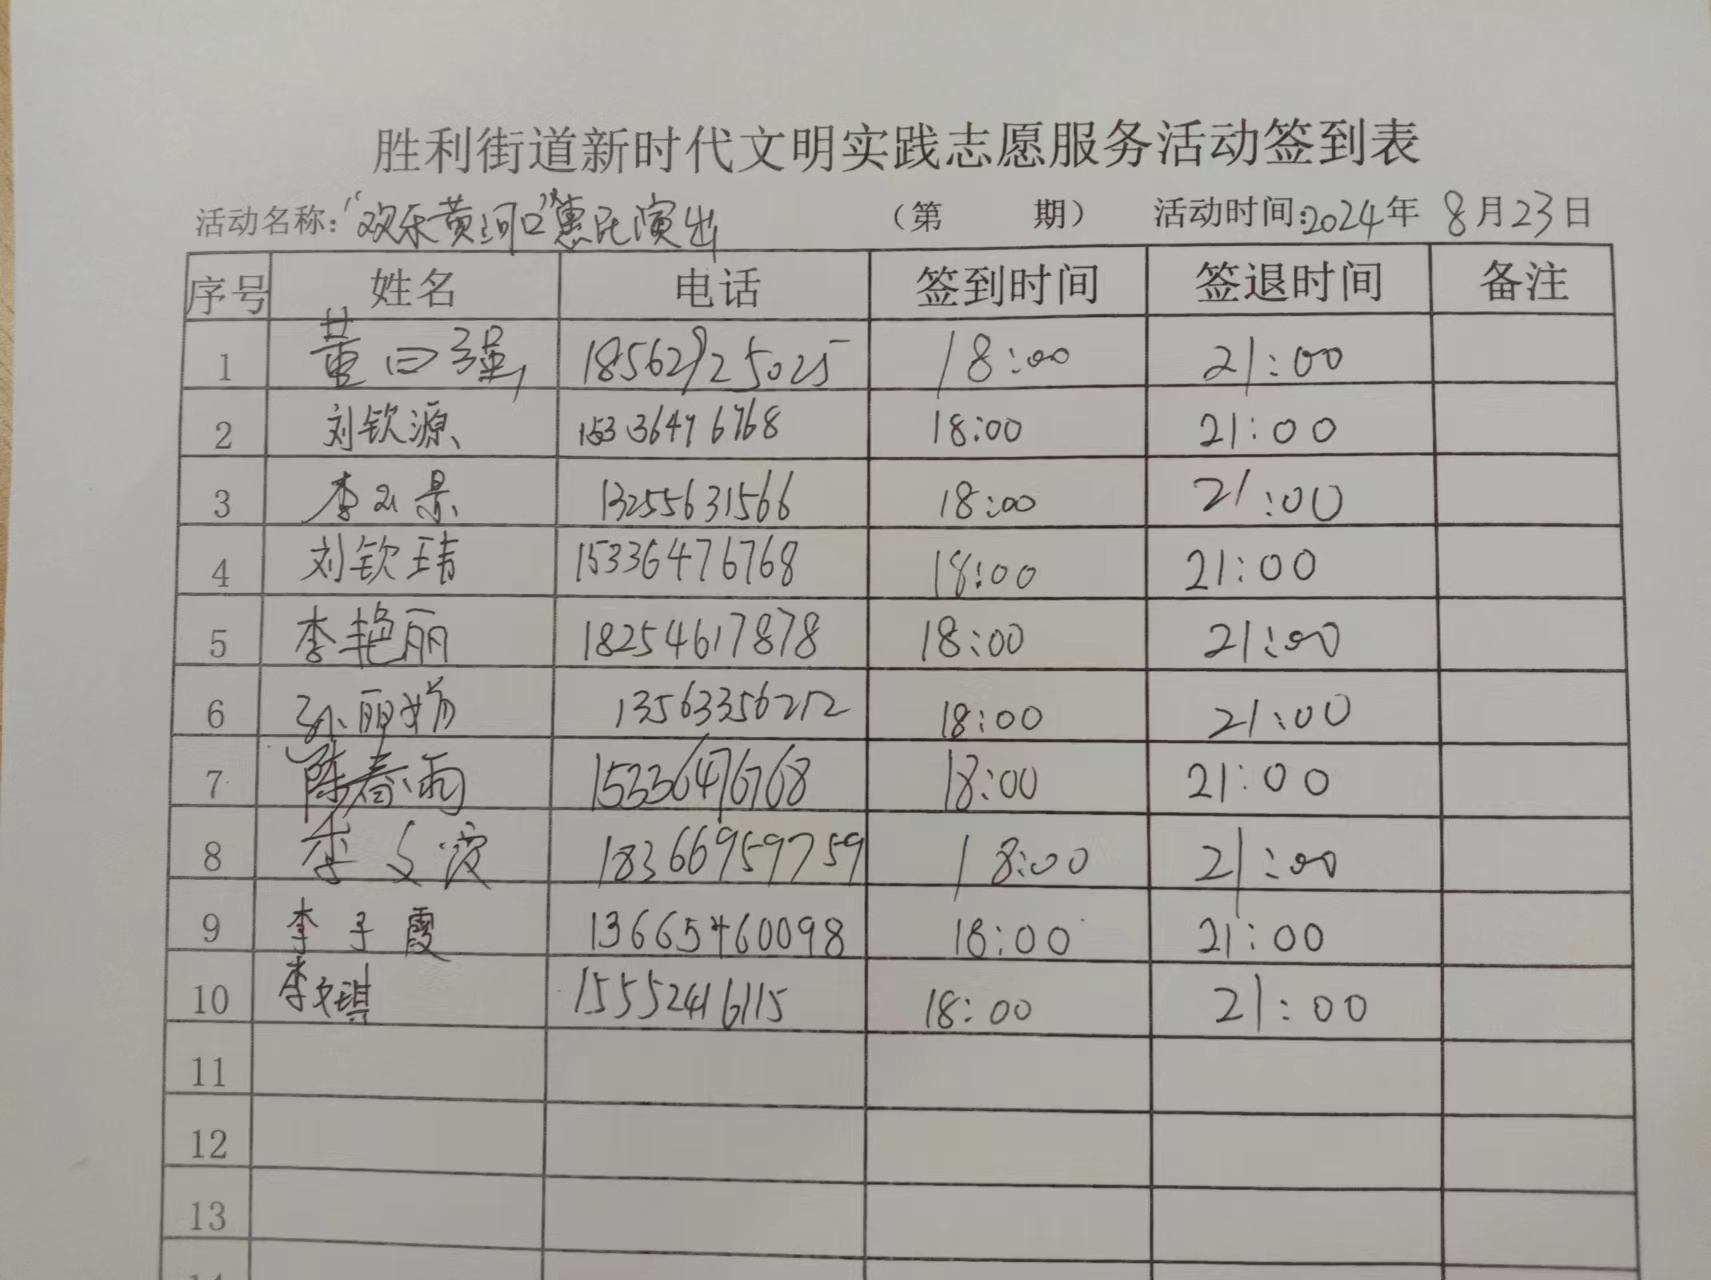 胜利街道新时代文明实践志愿服务活动签到表
活动名称:“欢乐黄河口”惠民演出 （第 期） 活动时间:2024年 8月23日
序号 姓名 电话 签到时间 签退时间 备注
1 董曰强 18562925025 18:00 21:00
2 刘钦源 15336476768 18:00 21:00
3 李 13255631566 18:00 21:00
4 刘钦玮 15336476768 18:00 21:00
5 李艳丽 18254617878 18:00 21:00
6 孙丽娟 13563356212 18:00 21:00
7 陈春雨 15336476768 18:00 21:00
8 李文 18366959759 18:00 21:00
9 李子霞 13665460098 18:00 21:00
10 李文琪 15552416115 18:00 21:00
11
12
13